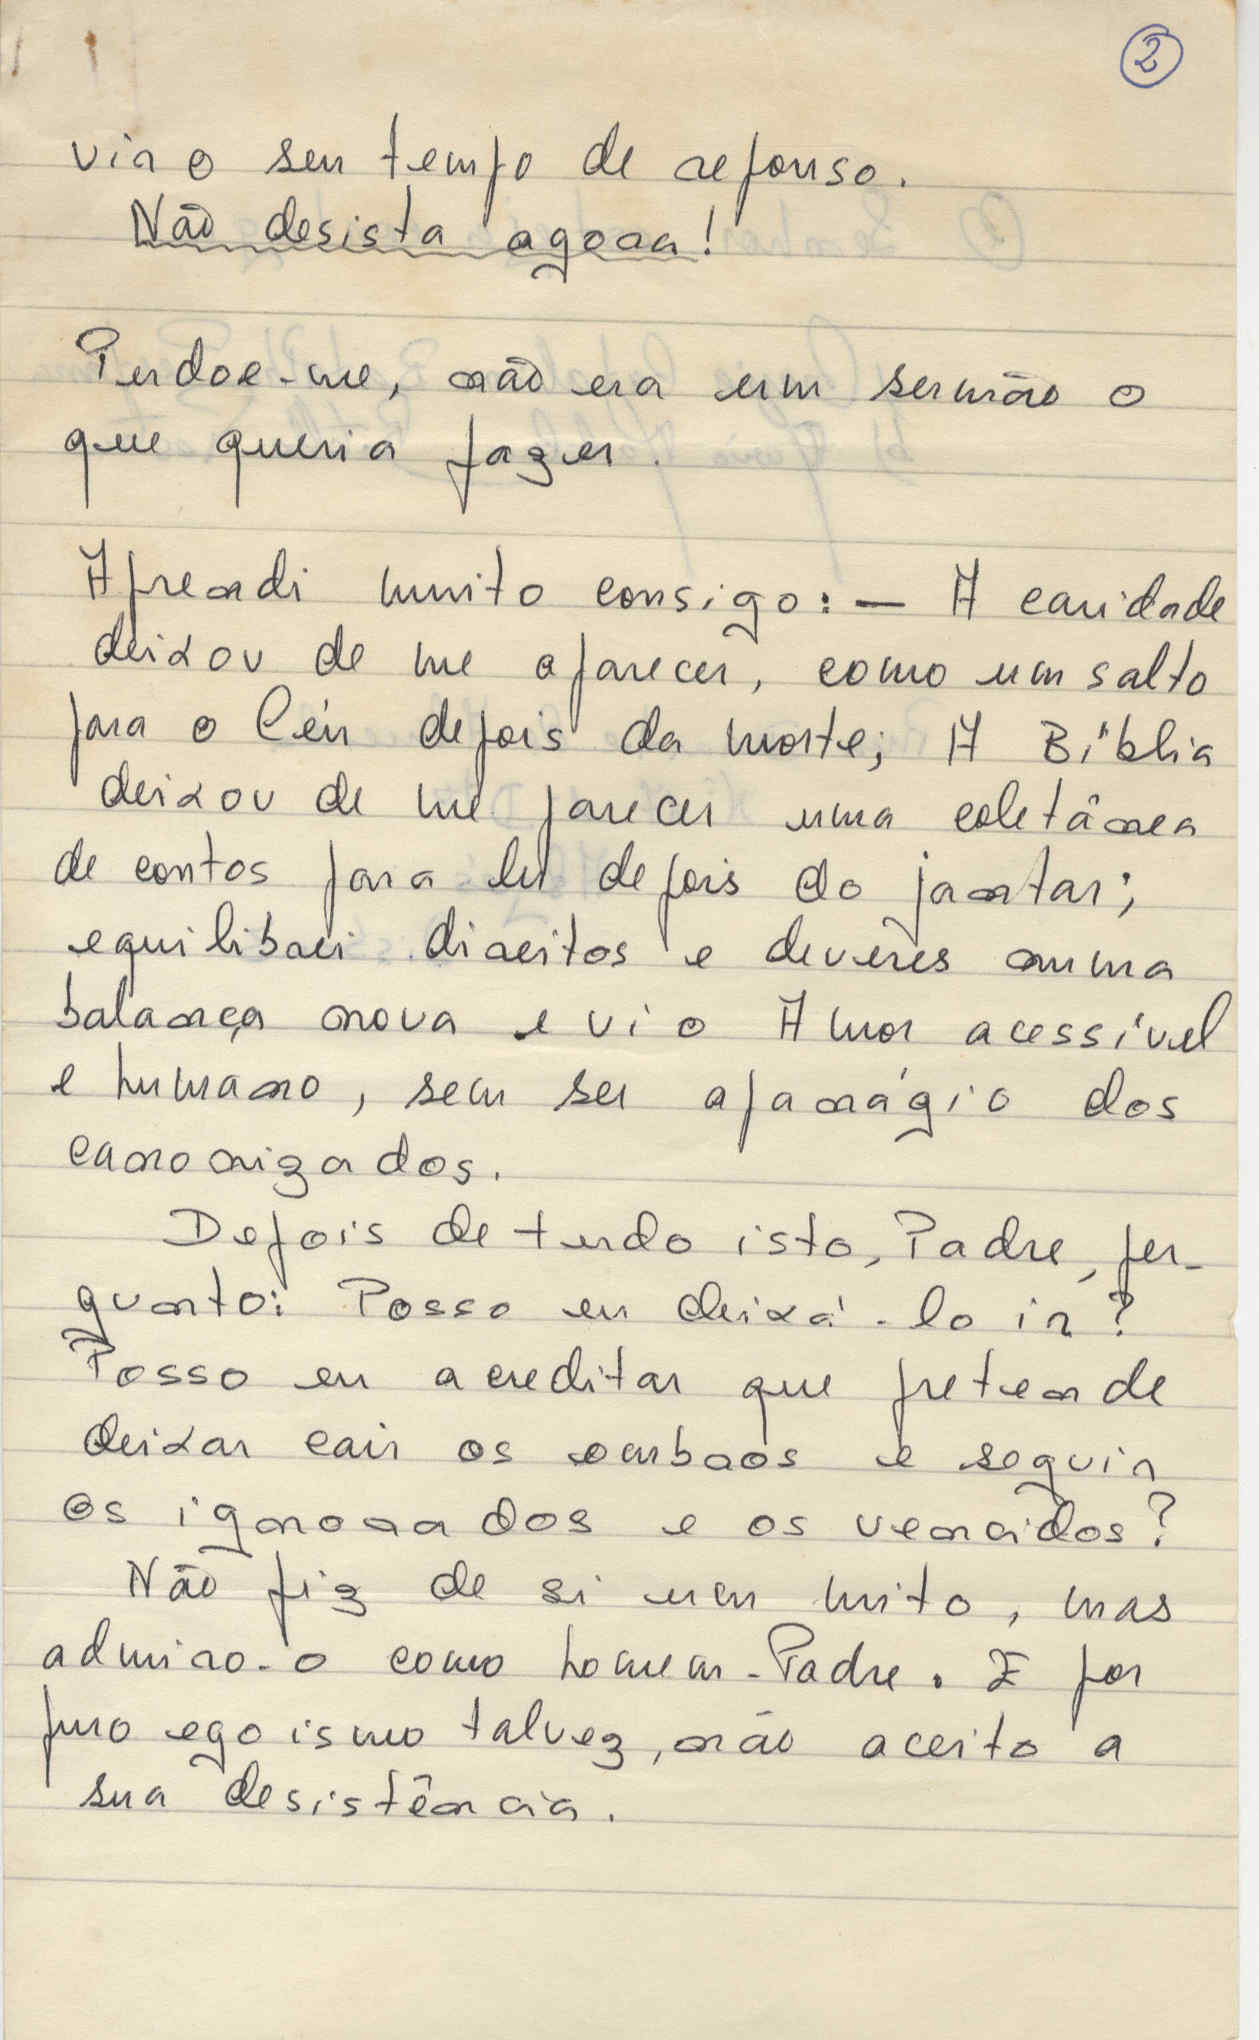 2
vir o seu tempo de repouso.
Não desista agora!
Perdoe-me, não era um sermão o
que queria fazer.
Aprendi muito consigo: — A caridade
deixou de me aparecer, como um salto
para o Céu depois da morte; A Bíblia
deixou de me parecer uma coletânea
de contos para ler depois do jantar;
equilibrei direitos e deveres numa
balança nova e vi o Amor acessível
e humano, sem ser apanágio dos
canonizados.
Depois de tudo isto, Padre, per-
gunto: Posso eu deixá-lo ir?
Posso eu acreditar que pretende
deixar cair os ombros e seguir
os ignorados e os vencidos?
Não fiz de si um mito, mas
admiro-o como homem-Padre. E por
puro egoismo talvez, não aceito a
sua desistência.